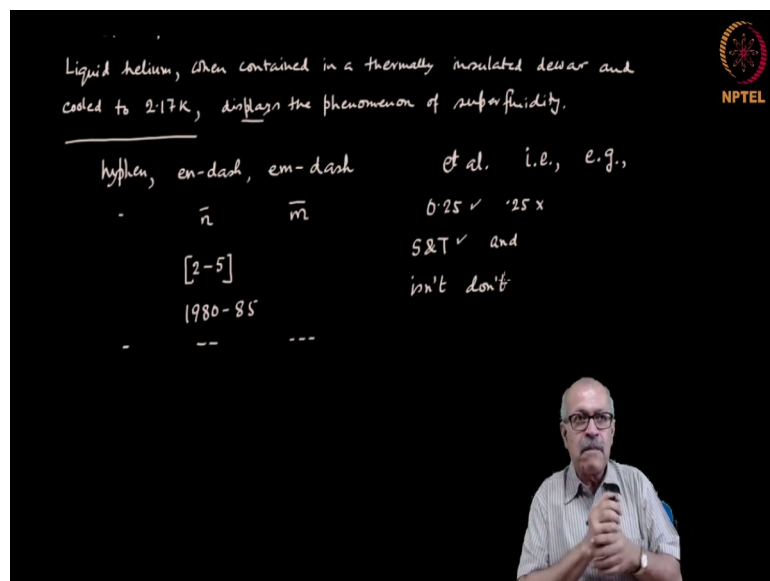 Liquid helium, when contained in a thermally insulated dewar and
cooled to 2.17K, displays the phenomenon of superfluidity.
hyphen, en-dash, em-dash
- n̄ m̄
[2-5]
1980-85
- -- ---
et al. i.e., e.g.,
0.25 ✓ .25 x
S&T ✓ and
isn't don't
NPTEL